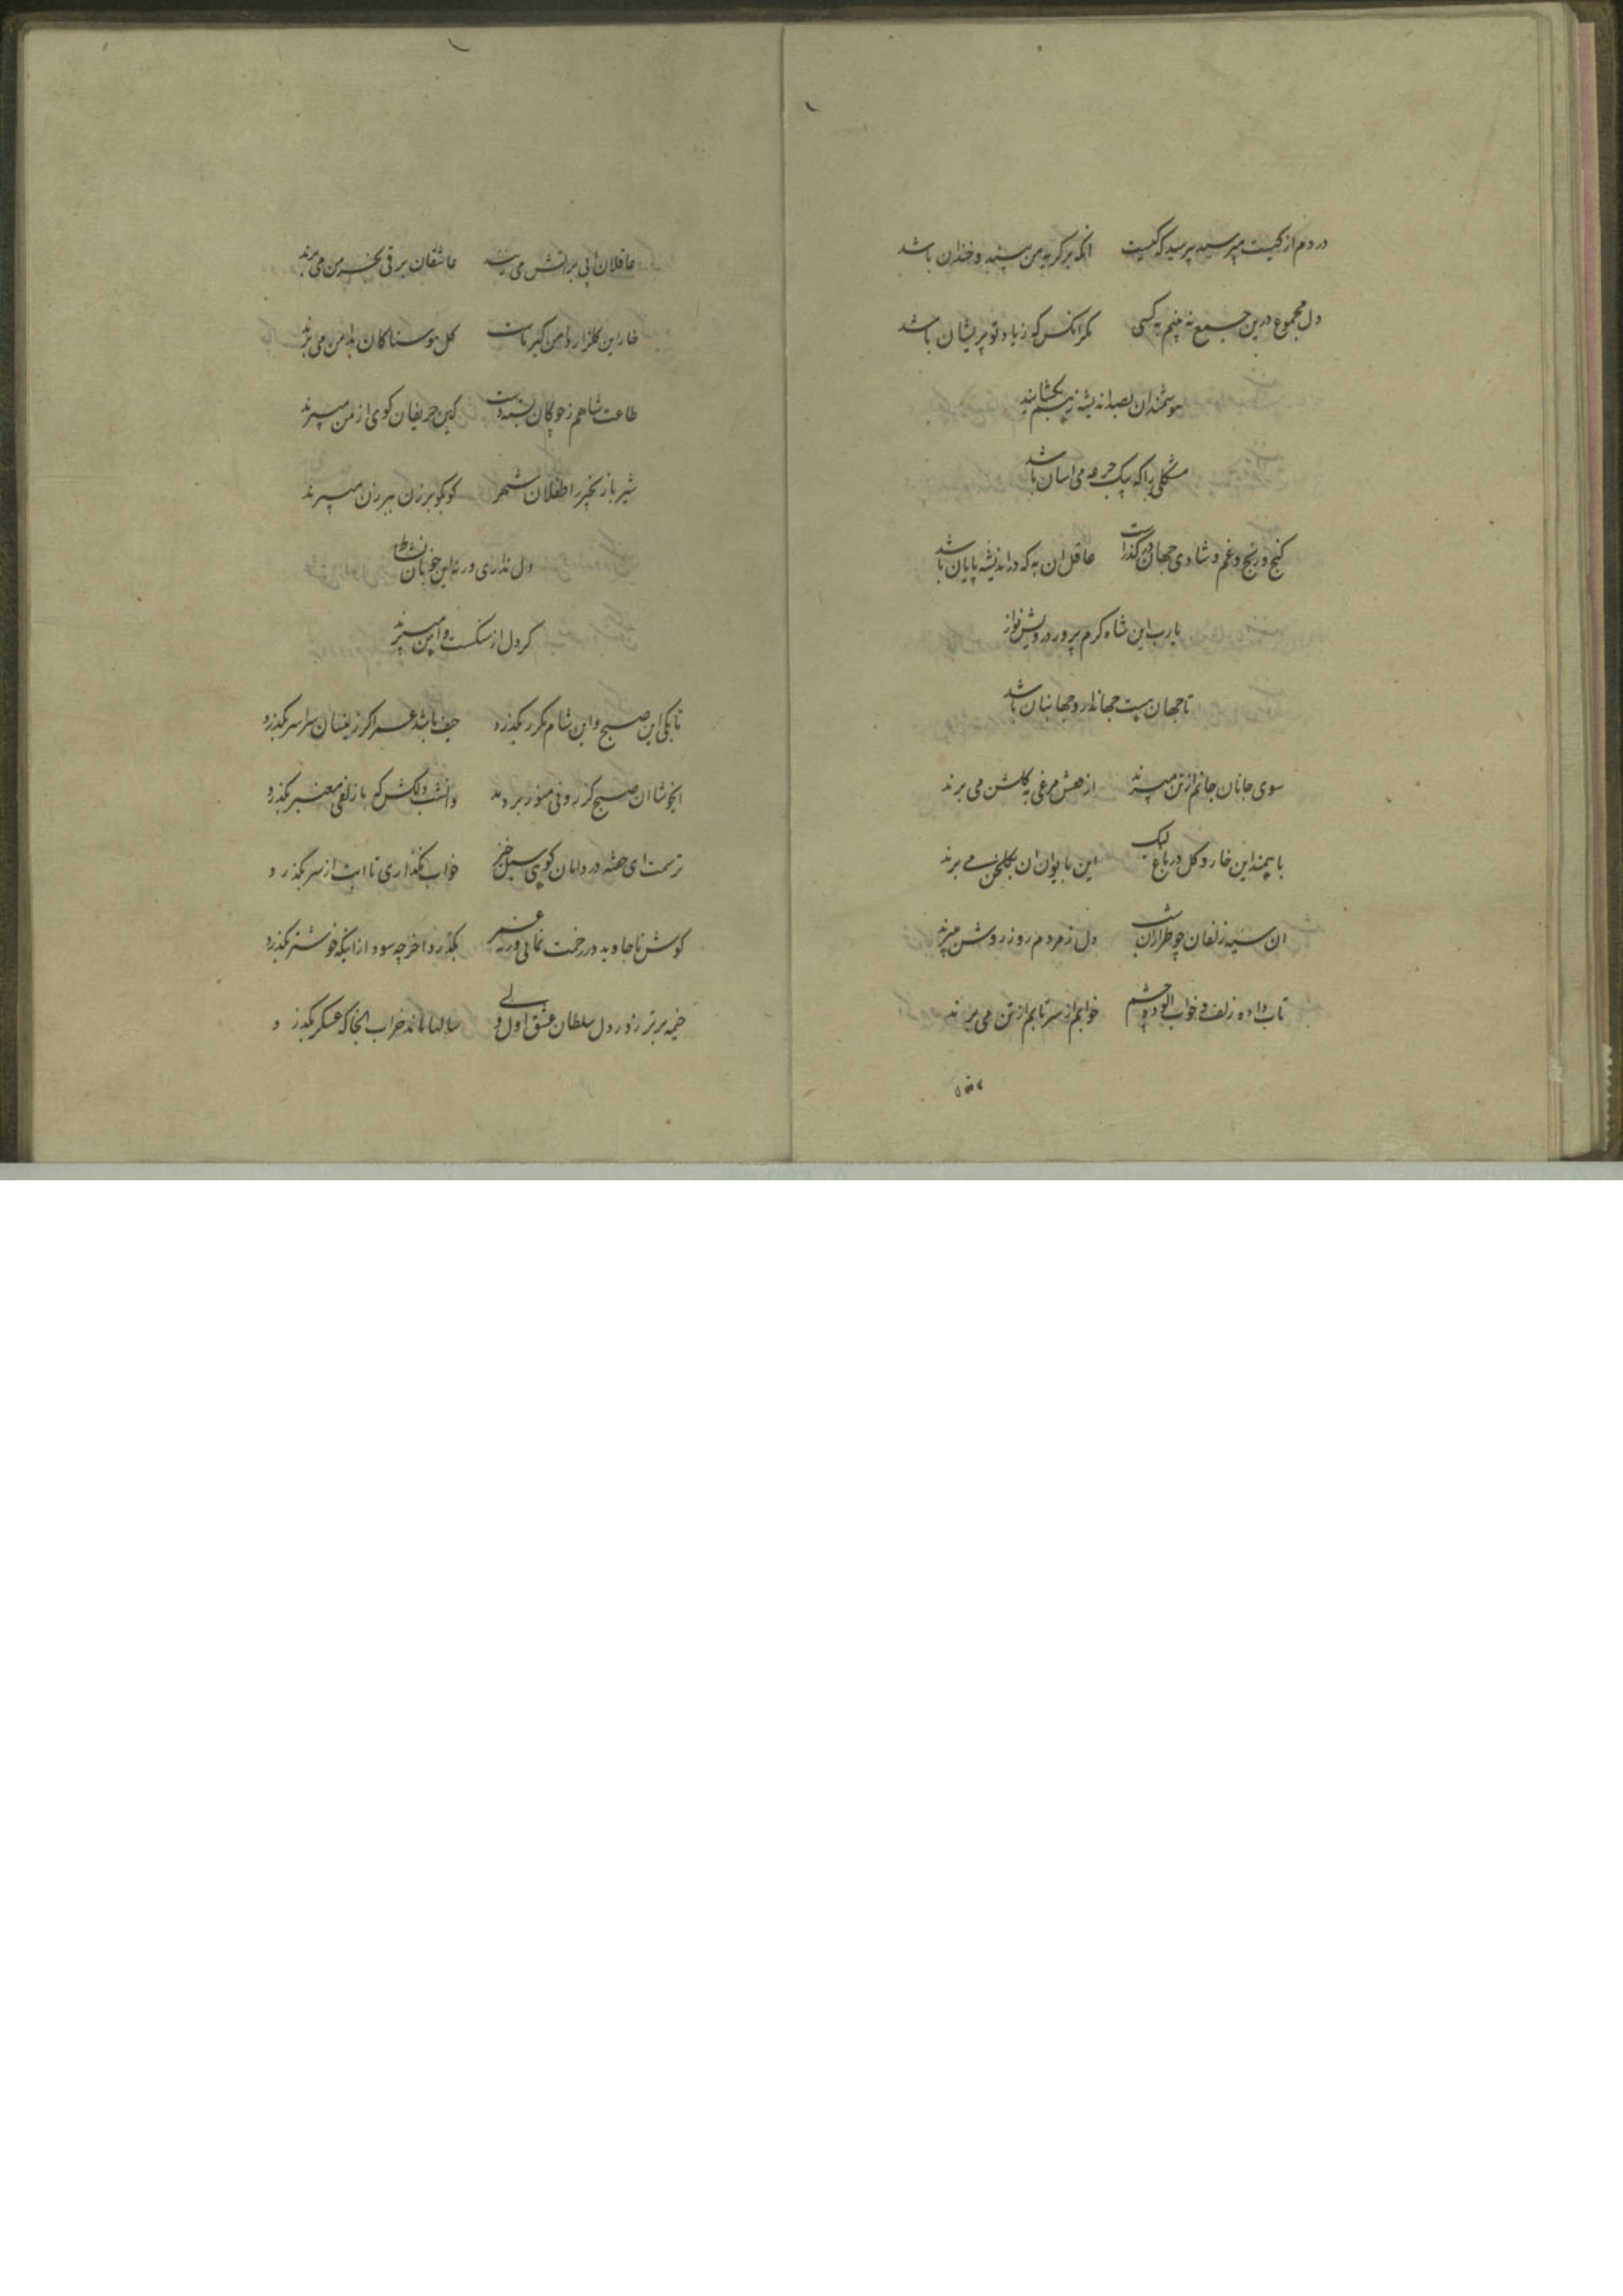 دردم از کیست مپرسید بپرسید که کیست انکه بر کریه من بیند و خندان باشد
دل مجموع درین جمع نه بینم به کسی مکر انکس که زیاد تو پریشان باشد
هوشمندان بصد اندیشه نیز بکشایند
مشکلی را که بیک جرعه می اسان باشد
کنج و رنج و غم و شادی جهان در کذراست عاقل ان به که در اندیشه پایان باشد
یا رب این شاه کرم پرور درویش نواز
تا جهان هست جهاندار و جهانبان باشد
سوی جانان جانم از تن میبرند از قفس مرغی به کلشن می برند
با همند این خار و کل در باغ لیک این بایوان ان بکلخن می برند
ان سیه زلفان چو طراران شب دل ز مردم روز روشن میبرند
تاب داده زلف و خواب الوده چشم خوابم از سر تابم از تن می برند
عاقلان ابی بر اتش می زنند عاشقان برقی بخرمن می برند
خار این کلزار دامن کیر ماست کل هوسناکان بدامن می برند
طاعت شاهم ز چوکان بسته دست کین حریفان کوی از من میبرند
شیر با زنجیر را طفلان شهر کو بکو برزن ببرزن میبرند
دل نداری ورنه این خوبان نشاط
کر دل از سنکست و اهن میبرند
تا بکی این صبح و این شام مکرر بکذرد حیف باشد عمر اکر زینسان سراسر بکذرد
ایخوشا ان صبح کز روئی منور بردمد وان شب دلکش که با زلفی معنبر بکذرد
ترسمت ای خفته در دامان کوهی سیل خیز خواب نکذاری تا ابت از سر بکذرد
کوش تا جاوید در رخت نمانی ورنه عمر بکذرد اخر چه سود از اینکه خوشتر بکذرد
خیمه برتر زد ز دل سلطان عشق اول ولی سالها ماند خراب انجا که عسکر بکذرد